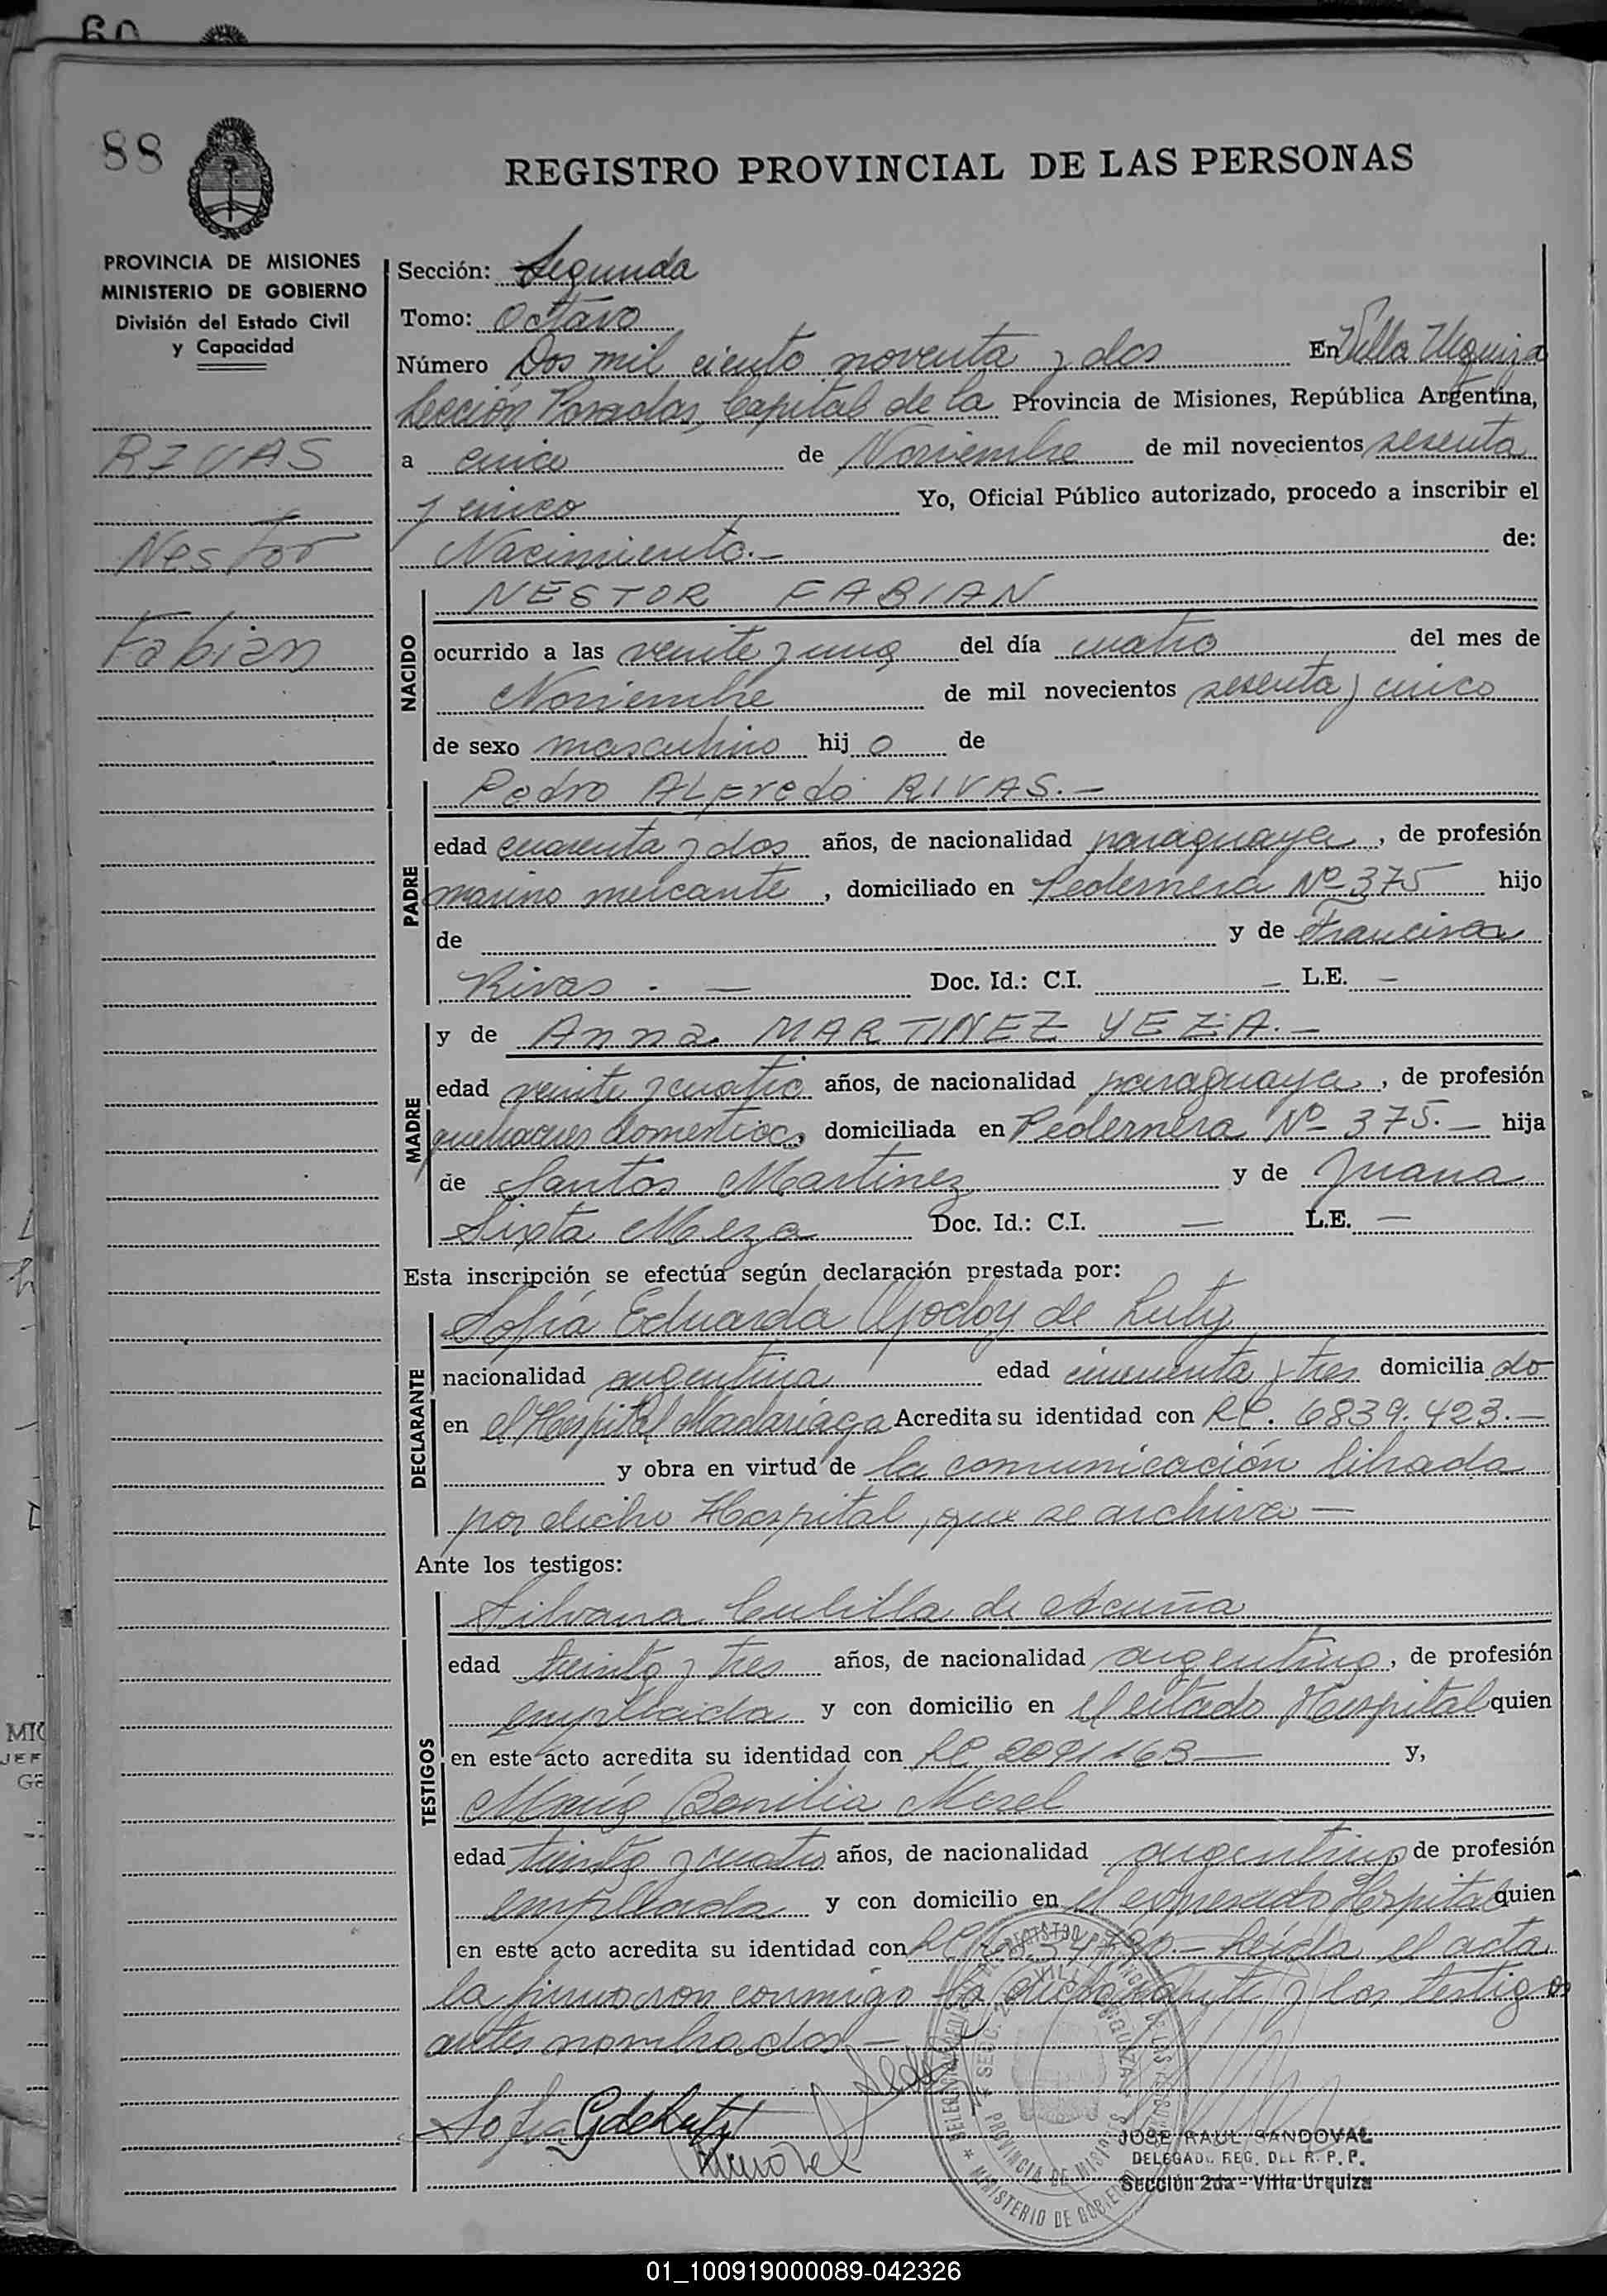 88
REGISTRO PROVINCIAL DE LAS PERSONAS
PROVINCIA DE MISIONES
MINISTERIO DE GOBIERNO
División del Estado Civil
y Capacidad
RIVAS
Nestor
Fabian
Sección: Segunda
Tomo: Octavo
Número Dos mil ciento noventa y dos En Villa Urquiza
Sección Posadas, Capital de la Provincia de Misiones, República Argentina,
a cinco de Noviembre de mil novecientos sesenta
y cinco Yo, Oficial Público autorizado, procedo a inscribir el
Nacimiento.- de:
NACIDO
NESTOR FABIAN
ocurrido a las veinte y una del día cuatro del mes de
Noviembre de mil novecientos sesenta y cinco
de sexo masculino hij o de
PADRE
Pedro ALFredo RIVAS.-
edad cuarenta y dos años, de nacionalidad paraguaya, de profesión
marino mercante, domiciliado en Pedernera Nº 375 hijo
de y de Francisca
Rivas . - Doc. Id.: C.I. - L.E. -
MADRE
y de Anna MARTINEZ YEZA.-
edad veinte y cuatro años, de nacionalidad paraguaya, de profesión
quehaceres domesticos, domiciliada en Pedernera Nº 375.- hija
de Santos Martinez y de Juana
Sixta Meza Doc. Id.: C.I. - L.E. -
Esta inscripción se efectúa según declaración prestada por:
DECLARANTE
Sofía Eduarda Godoy de Luty
nacionalidad argentina edad cincuenta y tres domicilia do
en el Hospital Madariaga Acredita su identidad con LC. 6839.423.-
y obra en virtud de la comunicación librada
por dicho Hospital, que se archiva -
Ante los testigos:
TESTIGOS
Silvana Cubilla de Acuña
edad treinta y tres años, de nacionalidad argentina, de profesión
empleada y con domicilio en el citado Hospital quien
en este acto acredita su identidad con LC 2091163 - y,
María Merel
edad treinta y cuatro años, de nacionalidad argentina, de profesión
empleada y con domicilio en el expresado Hospital quien
en este acto acredita su identidad con Leída el acta
la firmaron conmigo la declarante y los testigos
antes nombrados.-
Sofia G de Luty
JOSE RAUL SANDOVAL
DELEGADO REG. DEL R. P. P.
Sección 2da - Villa Urquiza
PROVINCIA DE MISIONES
MINISTERIO DE GOBIERNO
01_100919000089-042326